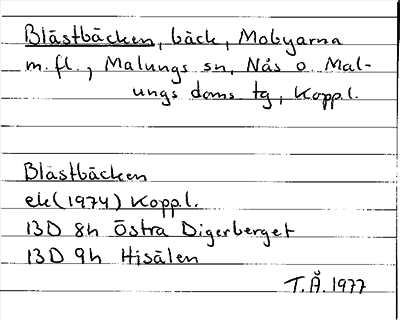 Blästbäcken, bäck, Mobyarna
m.fl., Malungs sn, Nås o. Mal-
ungs doms. tg, Koppl.
Blästbäcken
ek(1974) Koppl.
13D 8h Östra Digerberget
13D 9h Hisälen
T.Å. 1977